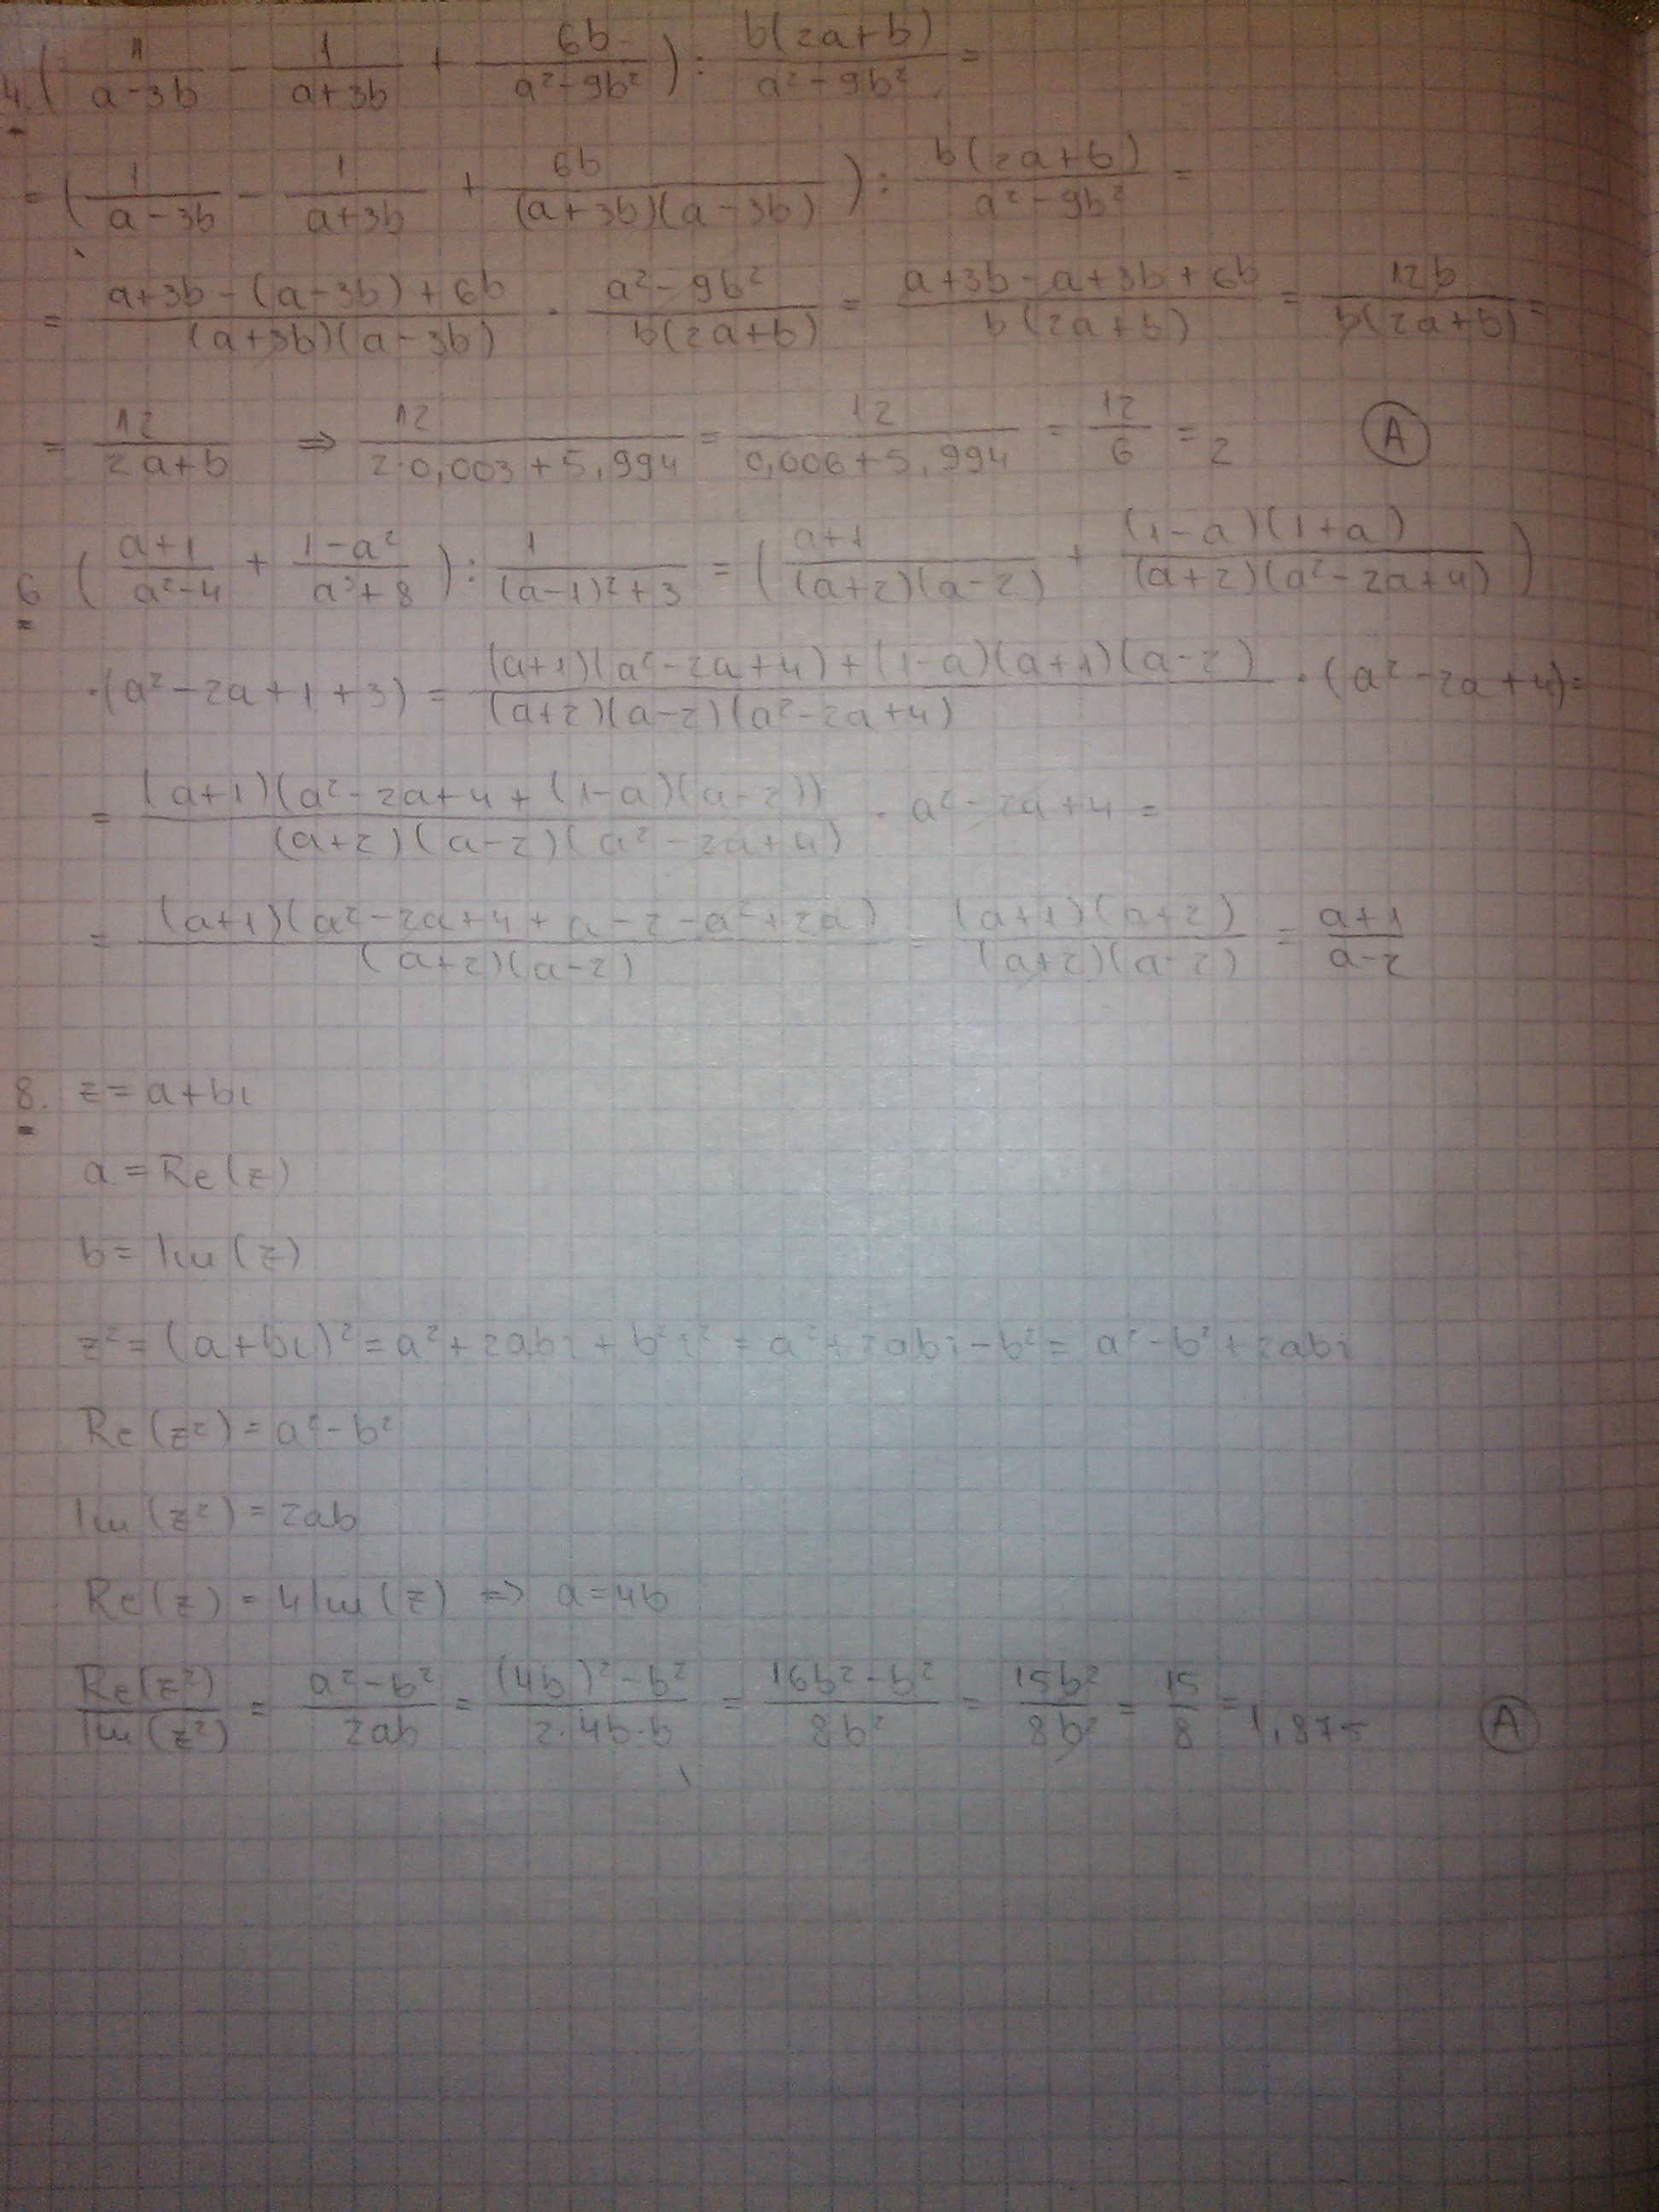 4. ( 1/(a-3b) - 1/(a+3b) + 6b/(a²-9b²) ) : b(2a+b)/(a²-9b²) =
= ( 1/(a-3b) - 1/(a+3b) + 6b/((a+3b)(a-3b)) ) : b(2a+b)/(a²-9b²) =
= (a+3b-(a-3b)+6b)/((a+3b)(a-3b)) · (a²-9b²)/(b(2a+b)) = (a+3b-a+3b+6b)/(b(2a+b)) = 12b/(b(2a+b)) =
= 12/(2a+b) ⇒ 12/(2·0,003+5,994) = 12/(0,006+5,994) = 12/6 = 2 (A)
6 ( (a+1)/(a²-4) + (1-a²)/(a³+8) ) : 1/((a-1)²+3) = ( (a+1)/((a+2)(a-2)) + (1-a)(1+a)/((a+2)(a²-2a+4)) )
·(a²-2a+1+3) = ((a+1)(a²-2a+4)+(1-a)(a+1)(a-2))/((a+2)(a-2)(a²-2a+4)) · (a²-2a+4) =
= (a+1)(a²-2a+4+(1-a)(a-2))/((a+2)(a-2)(a²-2a+4)) · a²-2a+4 =
= (a+1)(a²-2a+4+a-2-a²+2a)/((a+2)(a-2)) = (a+1)(a+2)/((a+2)(a-2)) = (a+1)/(a-2)
8. z=a+bi
a=Re(z)
b=Im(z)
z²=(a+bi)²=a²+2abi+b²i²=a²+2abi-b²=a²-b²+2abi
Re(z²)=a²-b²
Im(z²)=2ab
Re(z)=4Im(z) ⇒ a=4b
Re(z²)/Im(z²) = (a²-b²)/2ab = ((4b)²-b²)/(2·4b·b) = (16b²-b²)/8b² = 15b²/8b² = 15/8 = 1,875 (A)